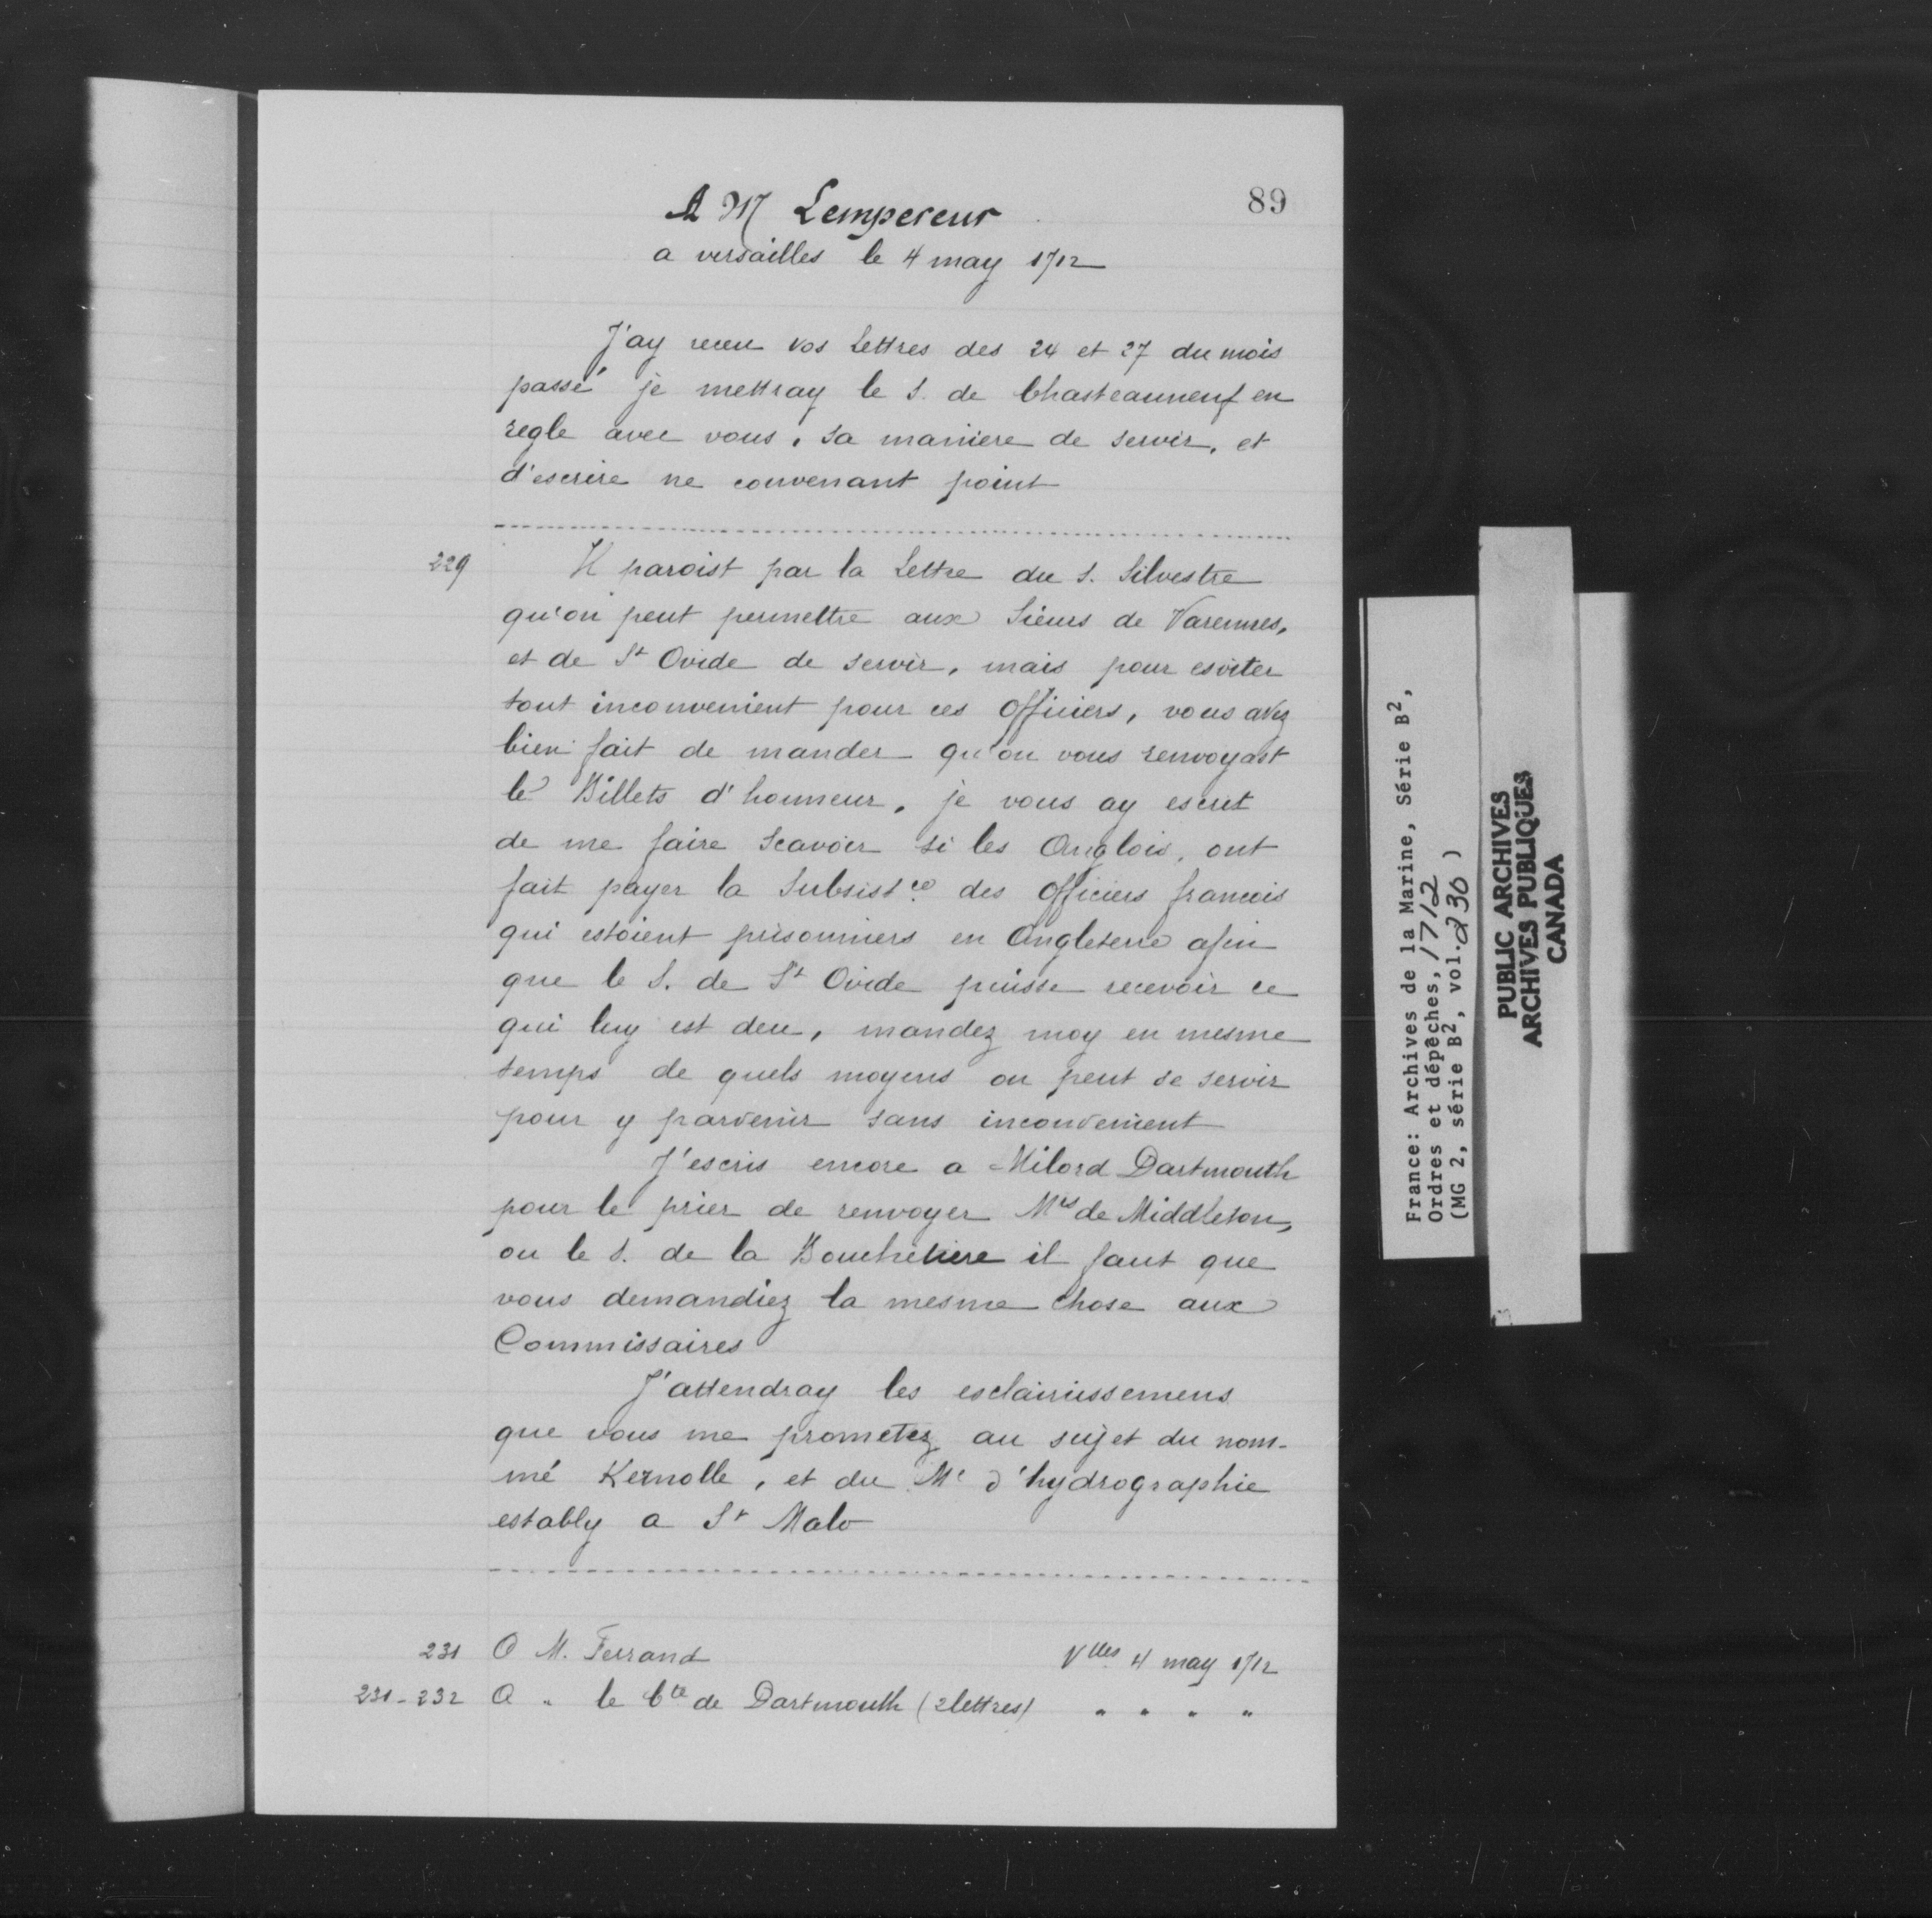 89
A M Lempereur
a versailles le 4 may 1712
J'ay receu vos Lettres des 24 et 27 du mois
passé je mettray le S. de Chasteauneuf en
regle avec vous, sa maniere de servir, et
d'escrire ne convenant point
229
Il paroist par la Lettre du S. Silvestre
qu'on peut permettre aux Sieurs de Varennes,
et de St Ovide de servir, mais pour esviter
tout inconvenient pour ces officiers, vous avez
bien fait de mander qu'on vous renvoyast
le Billets d'honneur, je vous ay escrit
de me faire Scavoir si les Anglois, ont
fait payer la Subsistce des officiers francois
qui estoient prisonniers en Angleterre afin
que le S. de St Ovide puisse recevoir ce
qui luy est deu, mandez moy en mesme
temps de quels moyens on peut se servir
pour y parvenir sans inconvenient
J'escris encore a Milord Dartmouth
pour le prier de renvoyer Mrs de Middleton,
ou le S. de la Bouchetiere il faut que
vous demandiez la mesme chose aux
Commissaires
J'attendray les esclaircissemens
que vous me prometez au sujet du nom-
mé Kernolle, et du Me d'hydrographie
estably a St Malo
231 A M. Ferrand Vlles 4 may 1712
231-232 A " le Cte de Dartmouth (2 lettres) " " " "
France: Archives de la Marine, Série B2,
Ordres et dépêches, 1712
(MG 2, série B2, vol. 230)
PUBLIC ARCHIVES
ARCHIVES PUBLIQUES
CANADA